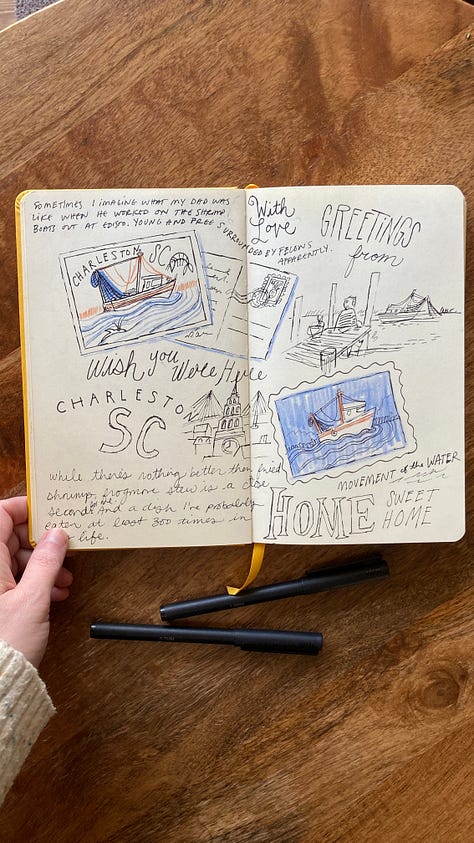 SOMETIMES I IMAGINE WHAT MY DAD WAS
LIKE WHEN HE WORKED ON THE SHRIMP
BOATS OUT AT EDISTO. YOUNG AND FREE SURROUNDED BY FELONS
APPARENTLY.
CHARLESTON SC
Wish you Were Here
CHARLESTON
SC
while there's nothing better than fried
shrimp, frogmore stew is a close
second. And a dish I've probably
eaten at least 300 times in
life.
With
Love
GREETINGS
from
MOVEMENT of the WATER
HOME SWEET
HOME